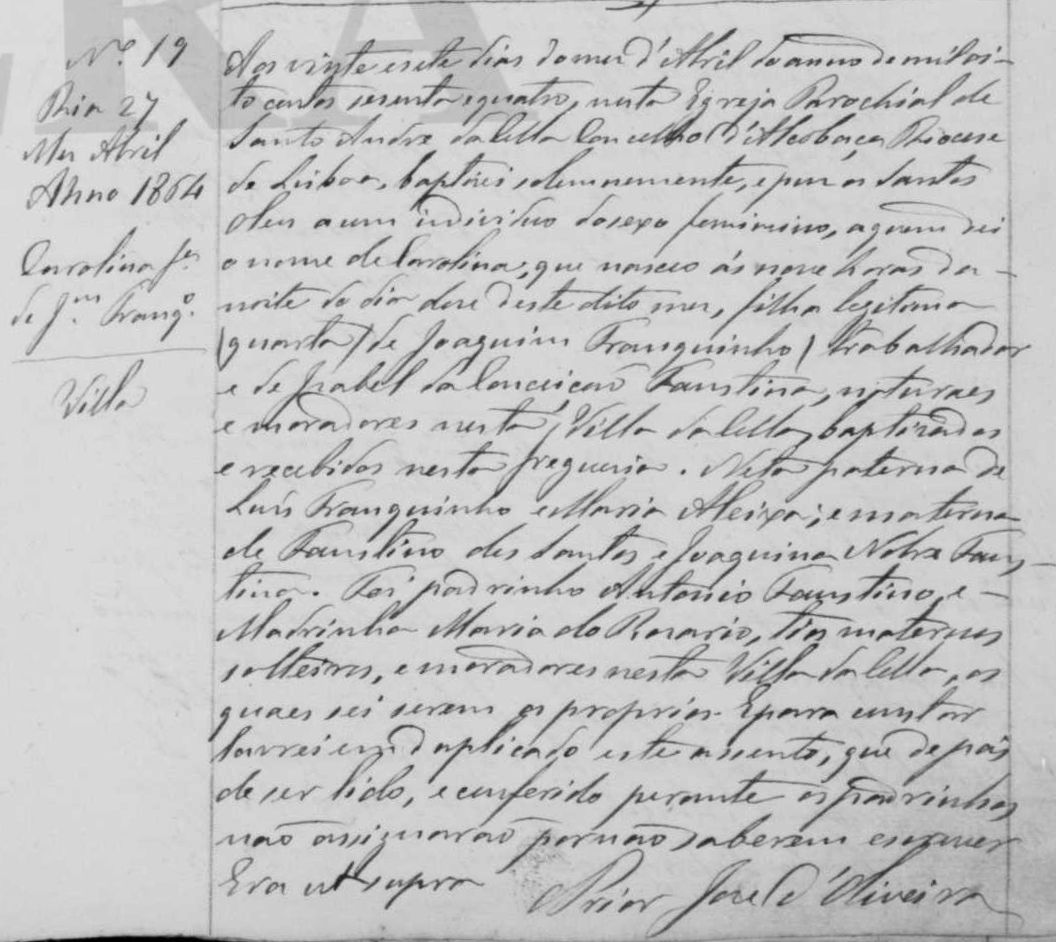 Nº 19
Dia 27
Mez Abril
Anno 1864
Carolina fª
de Jm Franqº
Villa
Aos vinte e sete dias do mez d'Abril do anno de mil oi-
to centos sesenta e quatro, nesta Egreja Parochial de
Santo Andre da Cella Concelho d'Alcobaça Diocese
de Lisboa, baptizei solemnemente, e puz os Santos
Oleos a um individuo do sexo feminino, a quem dei
o nome de Carolina, que nasceo ás nove horas da-
noite do dia doze deste dito mez, filha legitima
(quarta) de Joaquim Franquinho, trabalhador
e de Isabel da Conceição Faustina, naturaes
e moradores nesta Villa da Cella, baptizados
e recebidos nesta freguezia. Neta paterna de
Luis Franquinho e Maria Aleixa; e materna
de Faustino dos Santos e Joaquina Faus-
tina. Foi padrinho Antonio Faustino, e-
Madrinha Maria do Rozario, tios maternos
solteiros, e moradores nesta Villa da Cella, os
quaes sei serem os proprios. E para constar
lavrei em duplicado este assento, que depois
de ser lido, e conferido perante os padrinhos
não assignarão por não saberem escrever
Era ut supra
O Prior José d'Oliveira